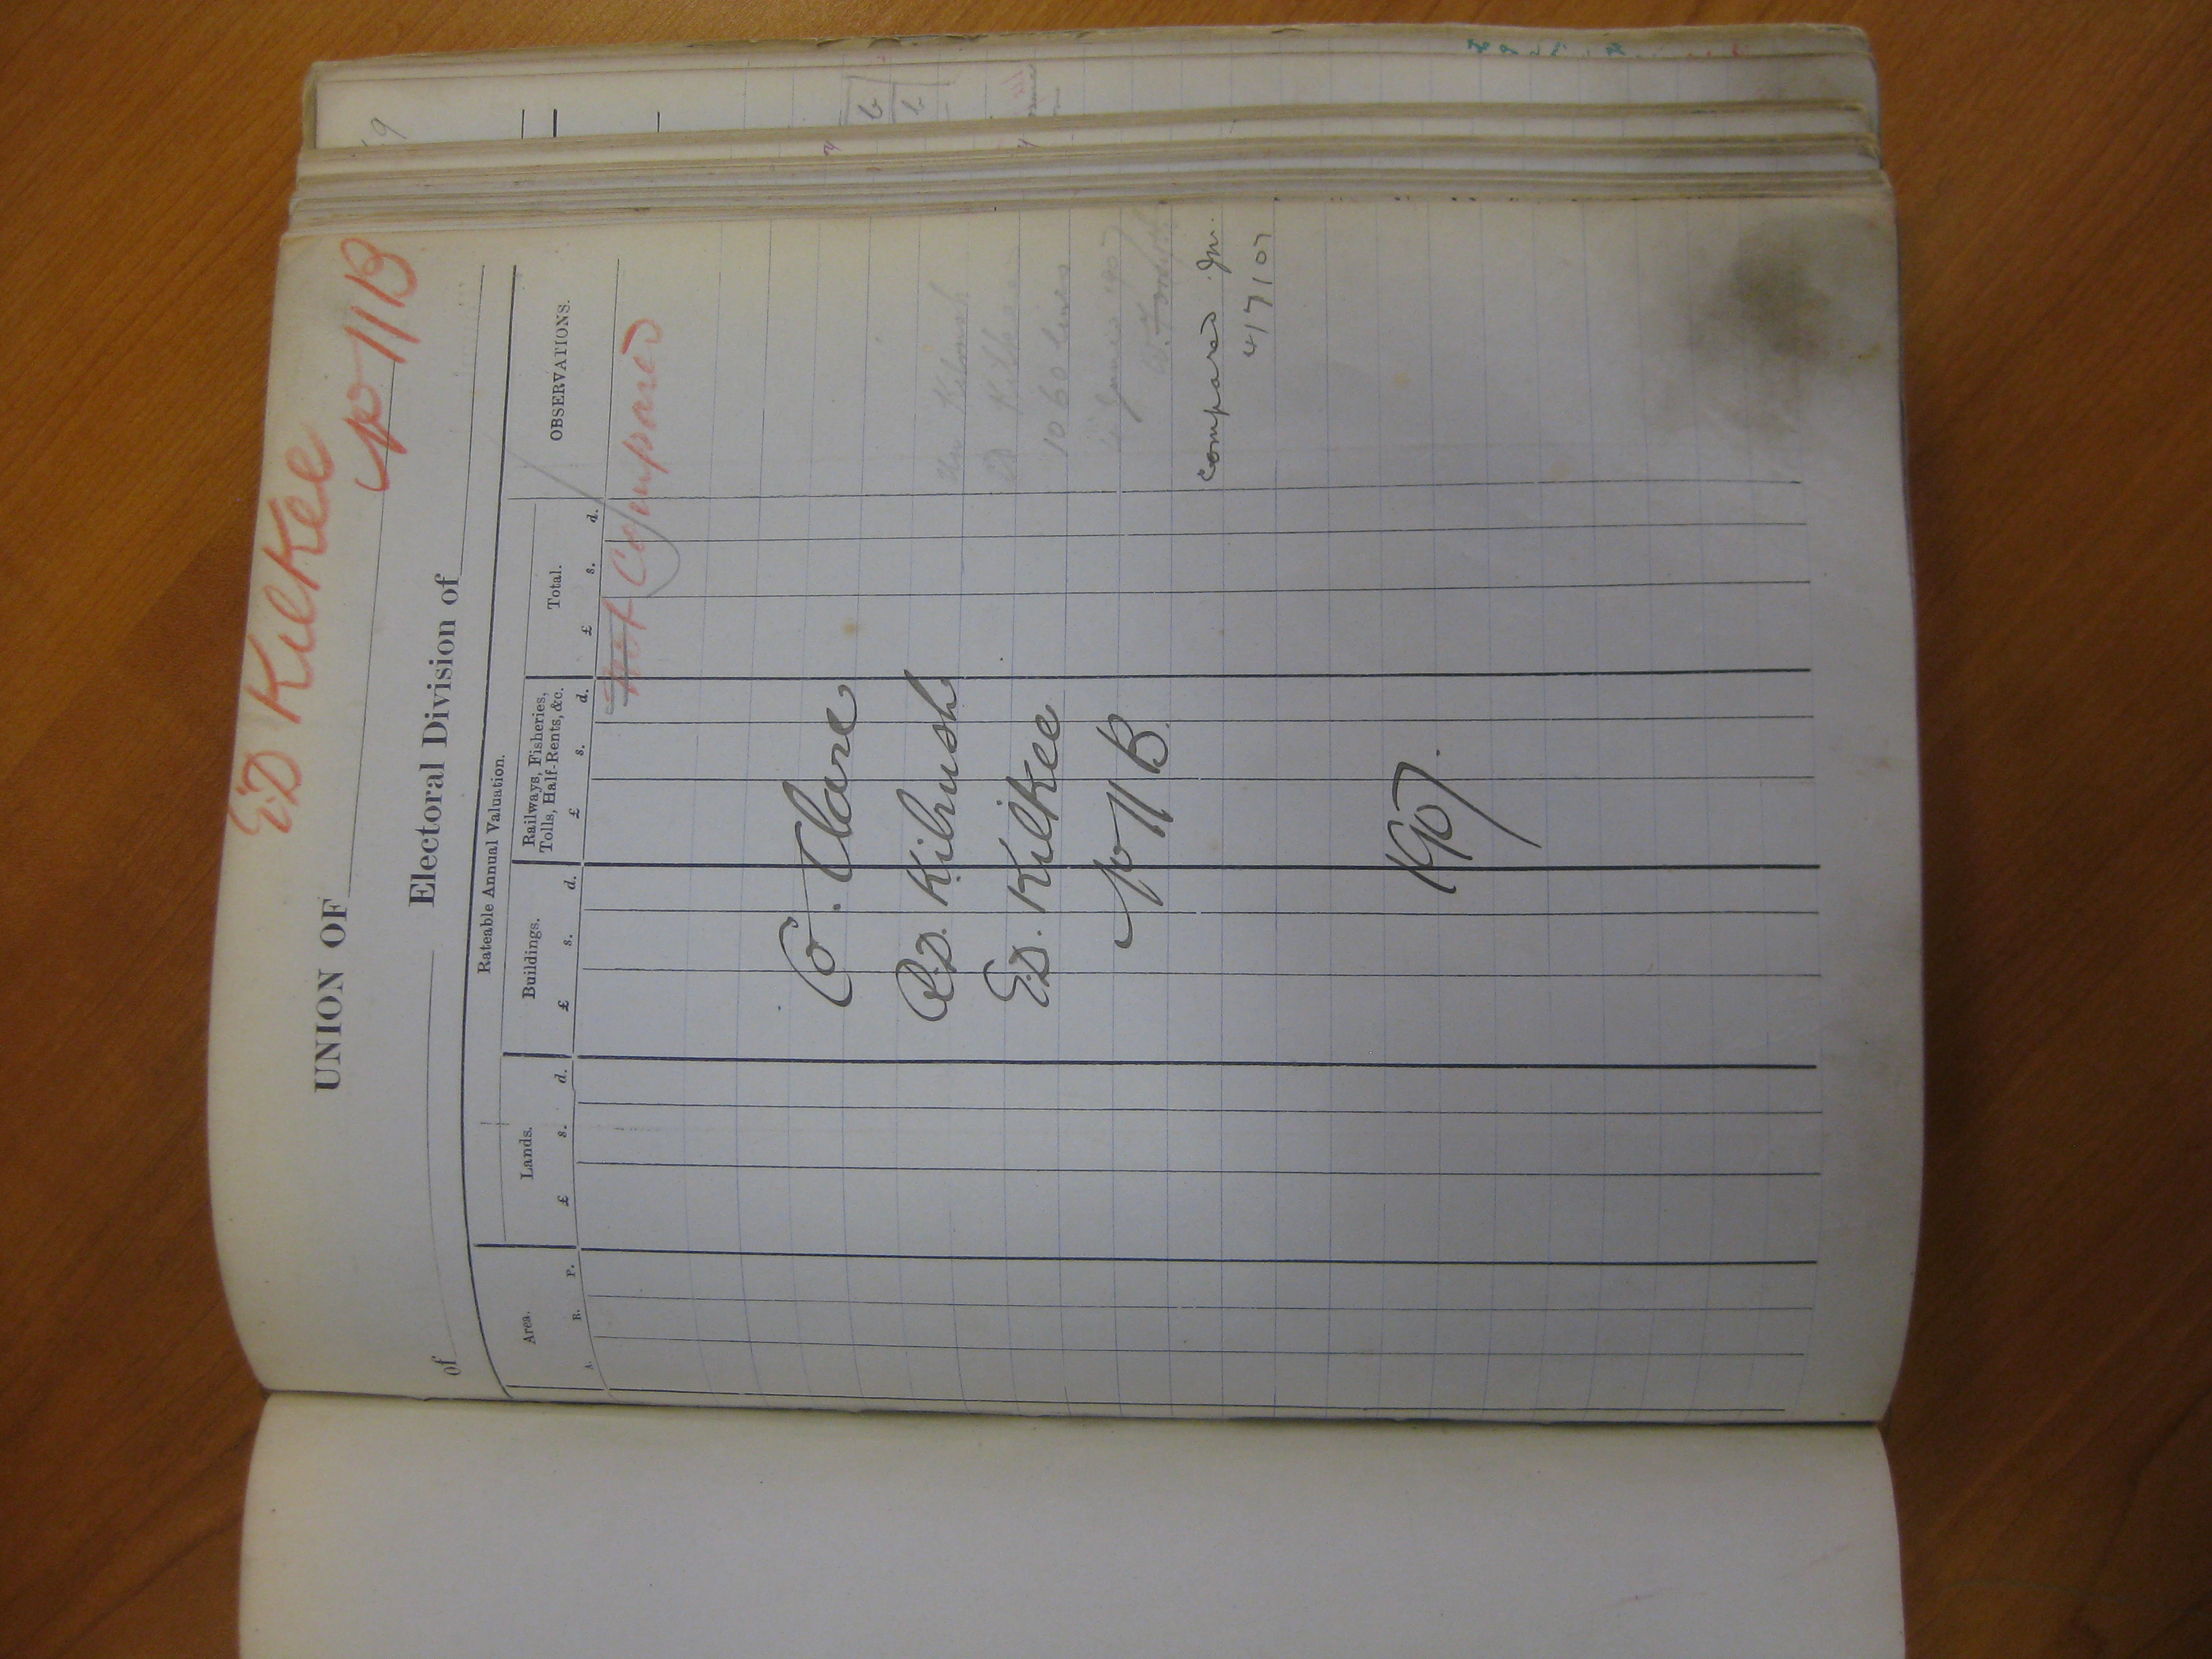 ED Kilkee
UNION OF
No 11B
of Electoral Division of
Area. Rateable Annual Valuation. OBSERVATIONS.
Lands. Buildings. Railways, Fisheries, Tolls, Half-Rents, &c. Total.
A. R. P. £ s. d. £ s. d. £ s. d. £ s. d.
Not Compared
Co. Clare
RD. Kilrush
Un Kilrush
ED. Kilkee
ED Kilkee
1060 lines
No 11 B.
June 1907
Compared Jn.
4/7/07
1907.